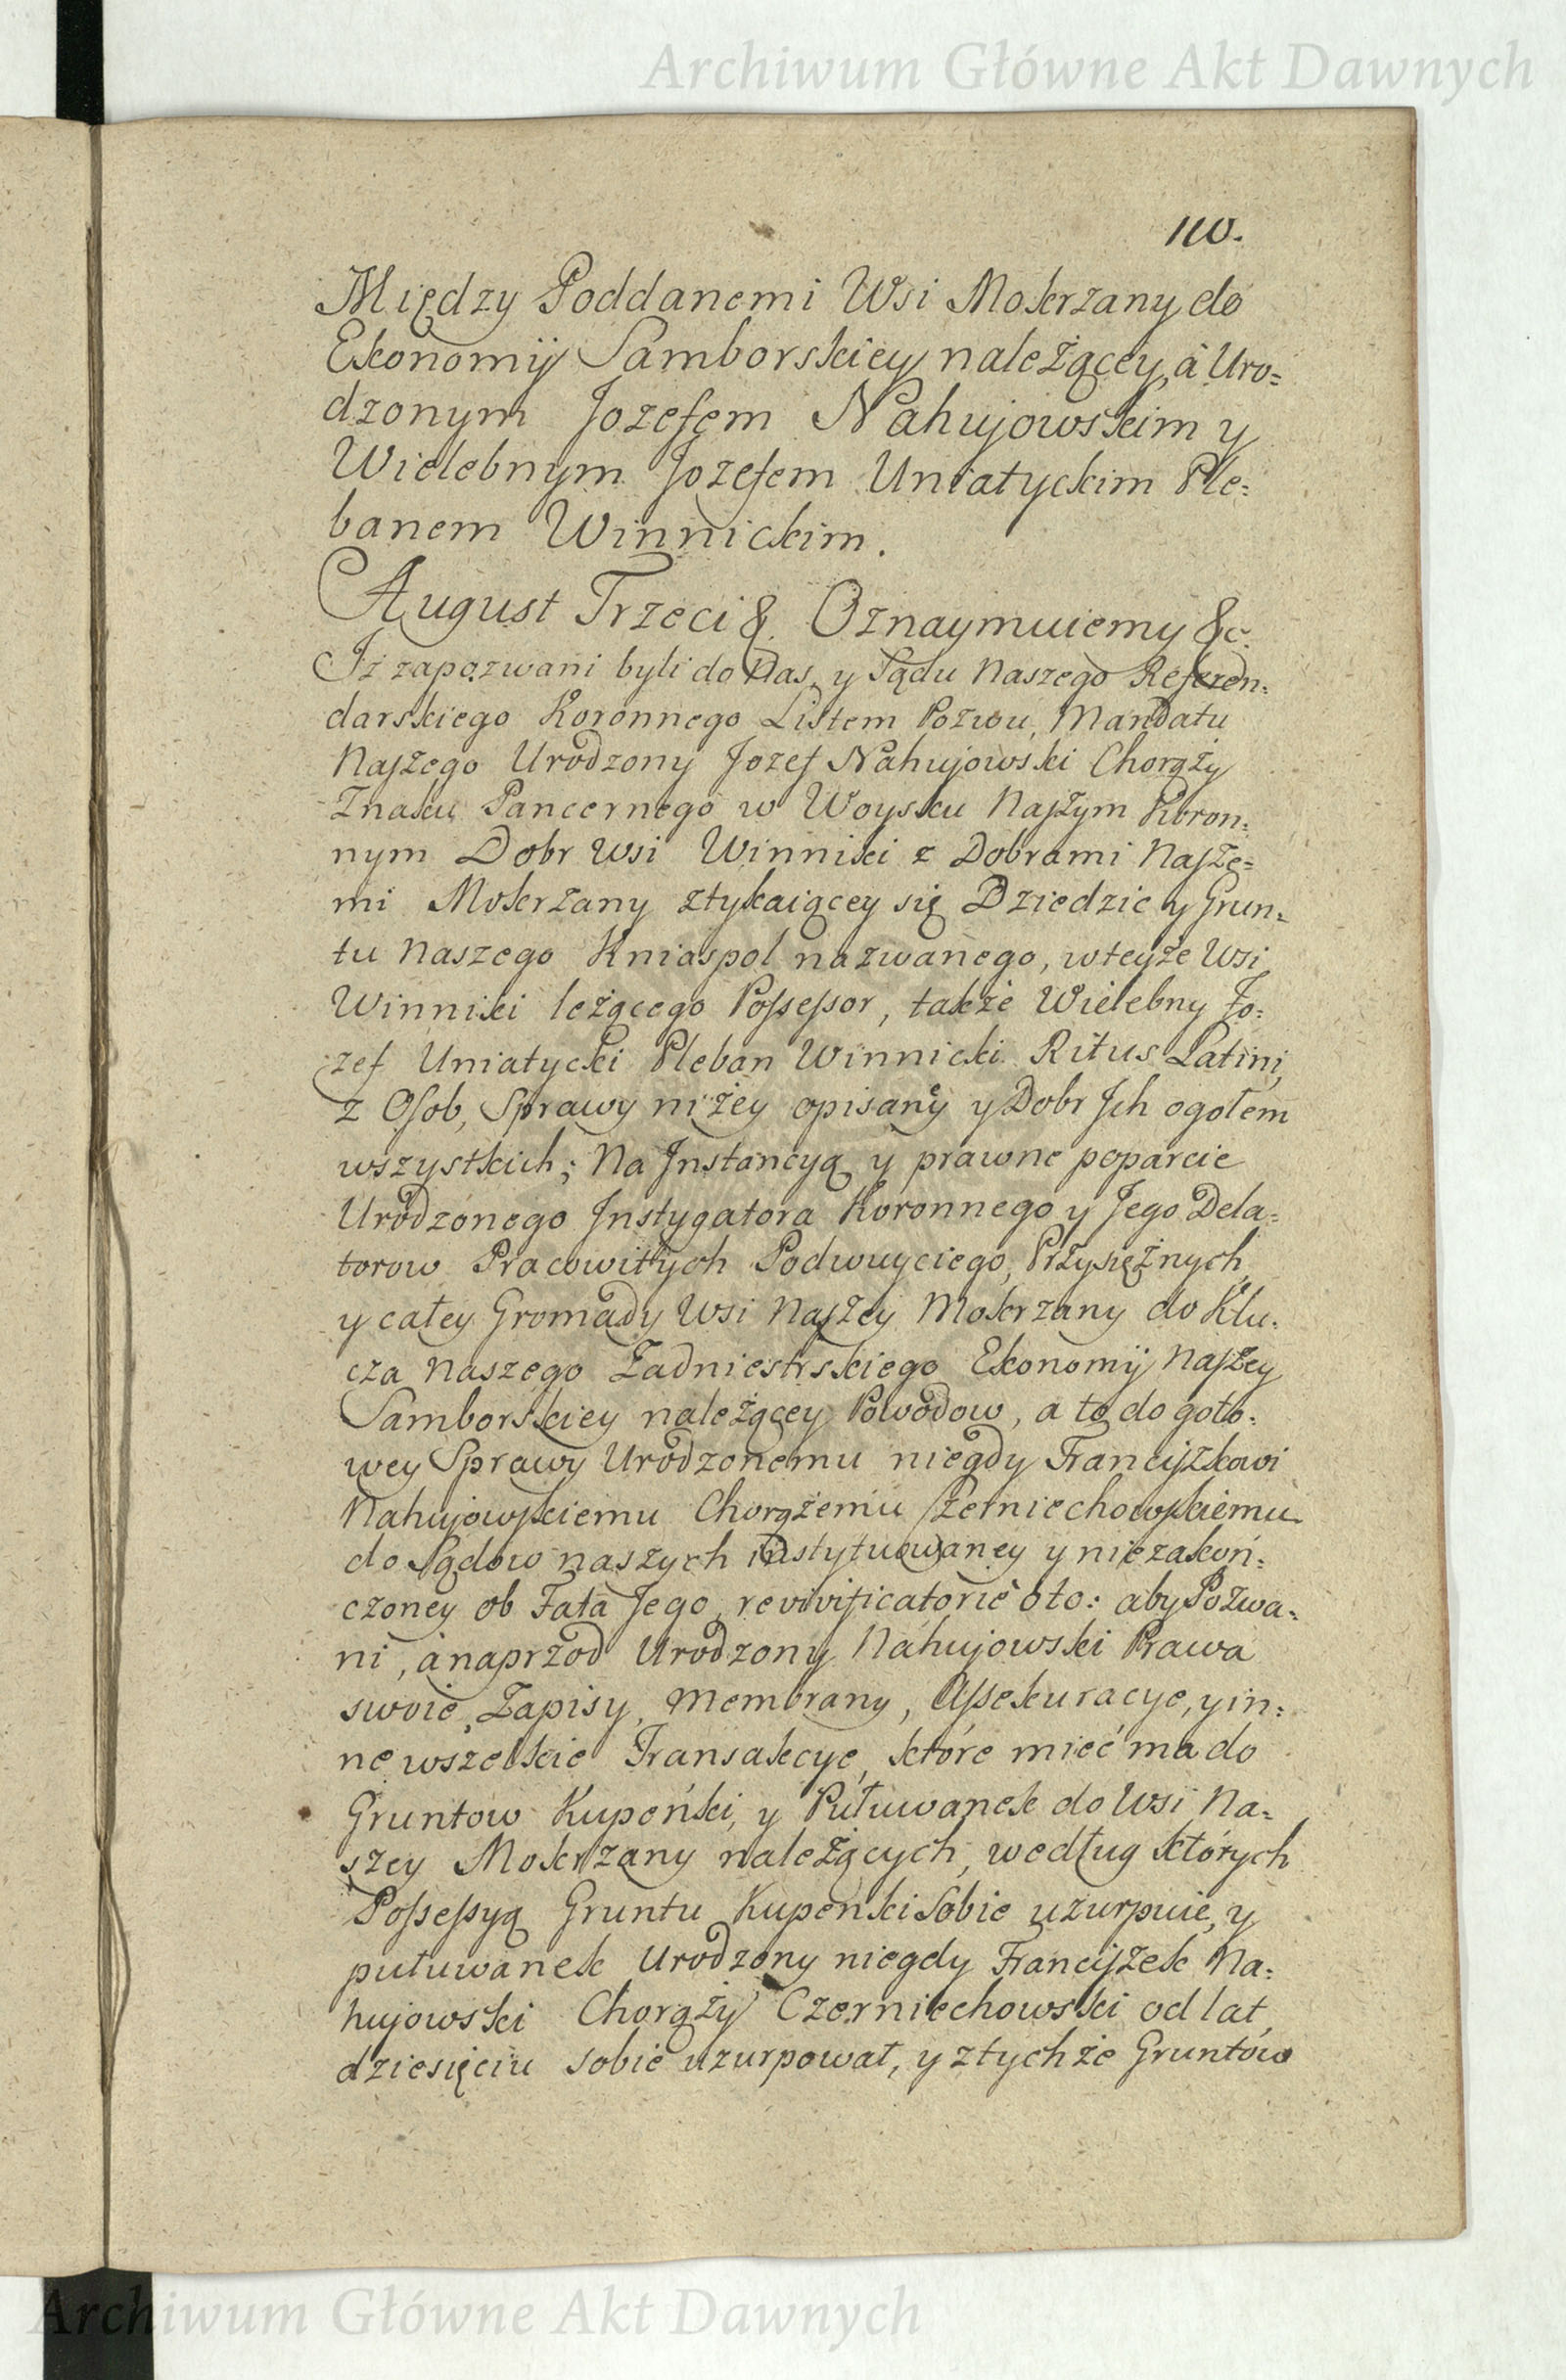 Archiwum Główne Akt Dawnych
110.
Między Poddanemi Wsi Mokrzany do
Ekonomij Samborskiey należącey, á Uro=
dzonym Jozefem Nahujowskim y
Wielebnym Jozefem Uniatyckim Ple=
banem Winnickim.
August Trzeci &. Oznaymuiemy &c.
Jż zapozwani byli do Nas, y Sądu Naszego Referen=
darskiego Koronnego Listem Pozwu, Mandatu
Naszego Urodzony Jozef Nahujowski Chorąży
Znaku Pancernego w Woysku Naszym Koron=
nym Dobr Wsi Winniki z Dobrami Nasze=
mi Mokrzany ztykaiącey się Dziedzic y Grun=
tu Naszego Kniaspol nazwanego, wteyże Wsi
Winniki leżącego Possessor, także Wielebny Jo=
zef Uniatycki Pleban Winnicki Ritus Latini,
z Osob, Sprawy niżey opisaney y Dobr Jch ogołem
wszystkich; Na Jnstancyą y prawne poparcie
Urodzonego Jnstygatora Koronnego y Jego Dela=
torow Pracowitych Podwuyciego, Przysiężnych
y całey Gromady Wsi Naszey Mokrzany do Klu=
cza Naszego Zadniestrskiego Ekonomij Naszey
Samborskiey należącey Powodow, a to do goto=
wey Sprawy Urodzonemu niegdy Franciszkowi
Nahujowskiemu Chorążemu Czerniechowskiemu
do Sądow naszych instytuowaney y niezakoń=
czoney ob Fata Jego, revivificatoriè oto: aby Pozwa=
ni, á naprzod Urodzony Nahujowski Prawa
swoie, Zapisy, Membrany, Assekuracye, y in=
ne wszelkie Transakcye, które mieć ma do
Gruntow Kupeński, y Putuwanek do Wsi Na=
szey Mokrzany należących, według których
Possessyą Gruntu Kupenski Sobie uzurpuie, y
putuwanek Urodzony niegdy Franciszek Na=
hujowski Chorąży Czerniechowski od lat
dziesięciu sobie uzurpował, y ztychże Gruntów
Archiwum Główne Akt Dawnych